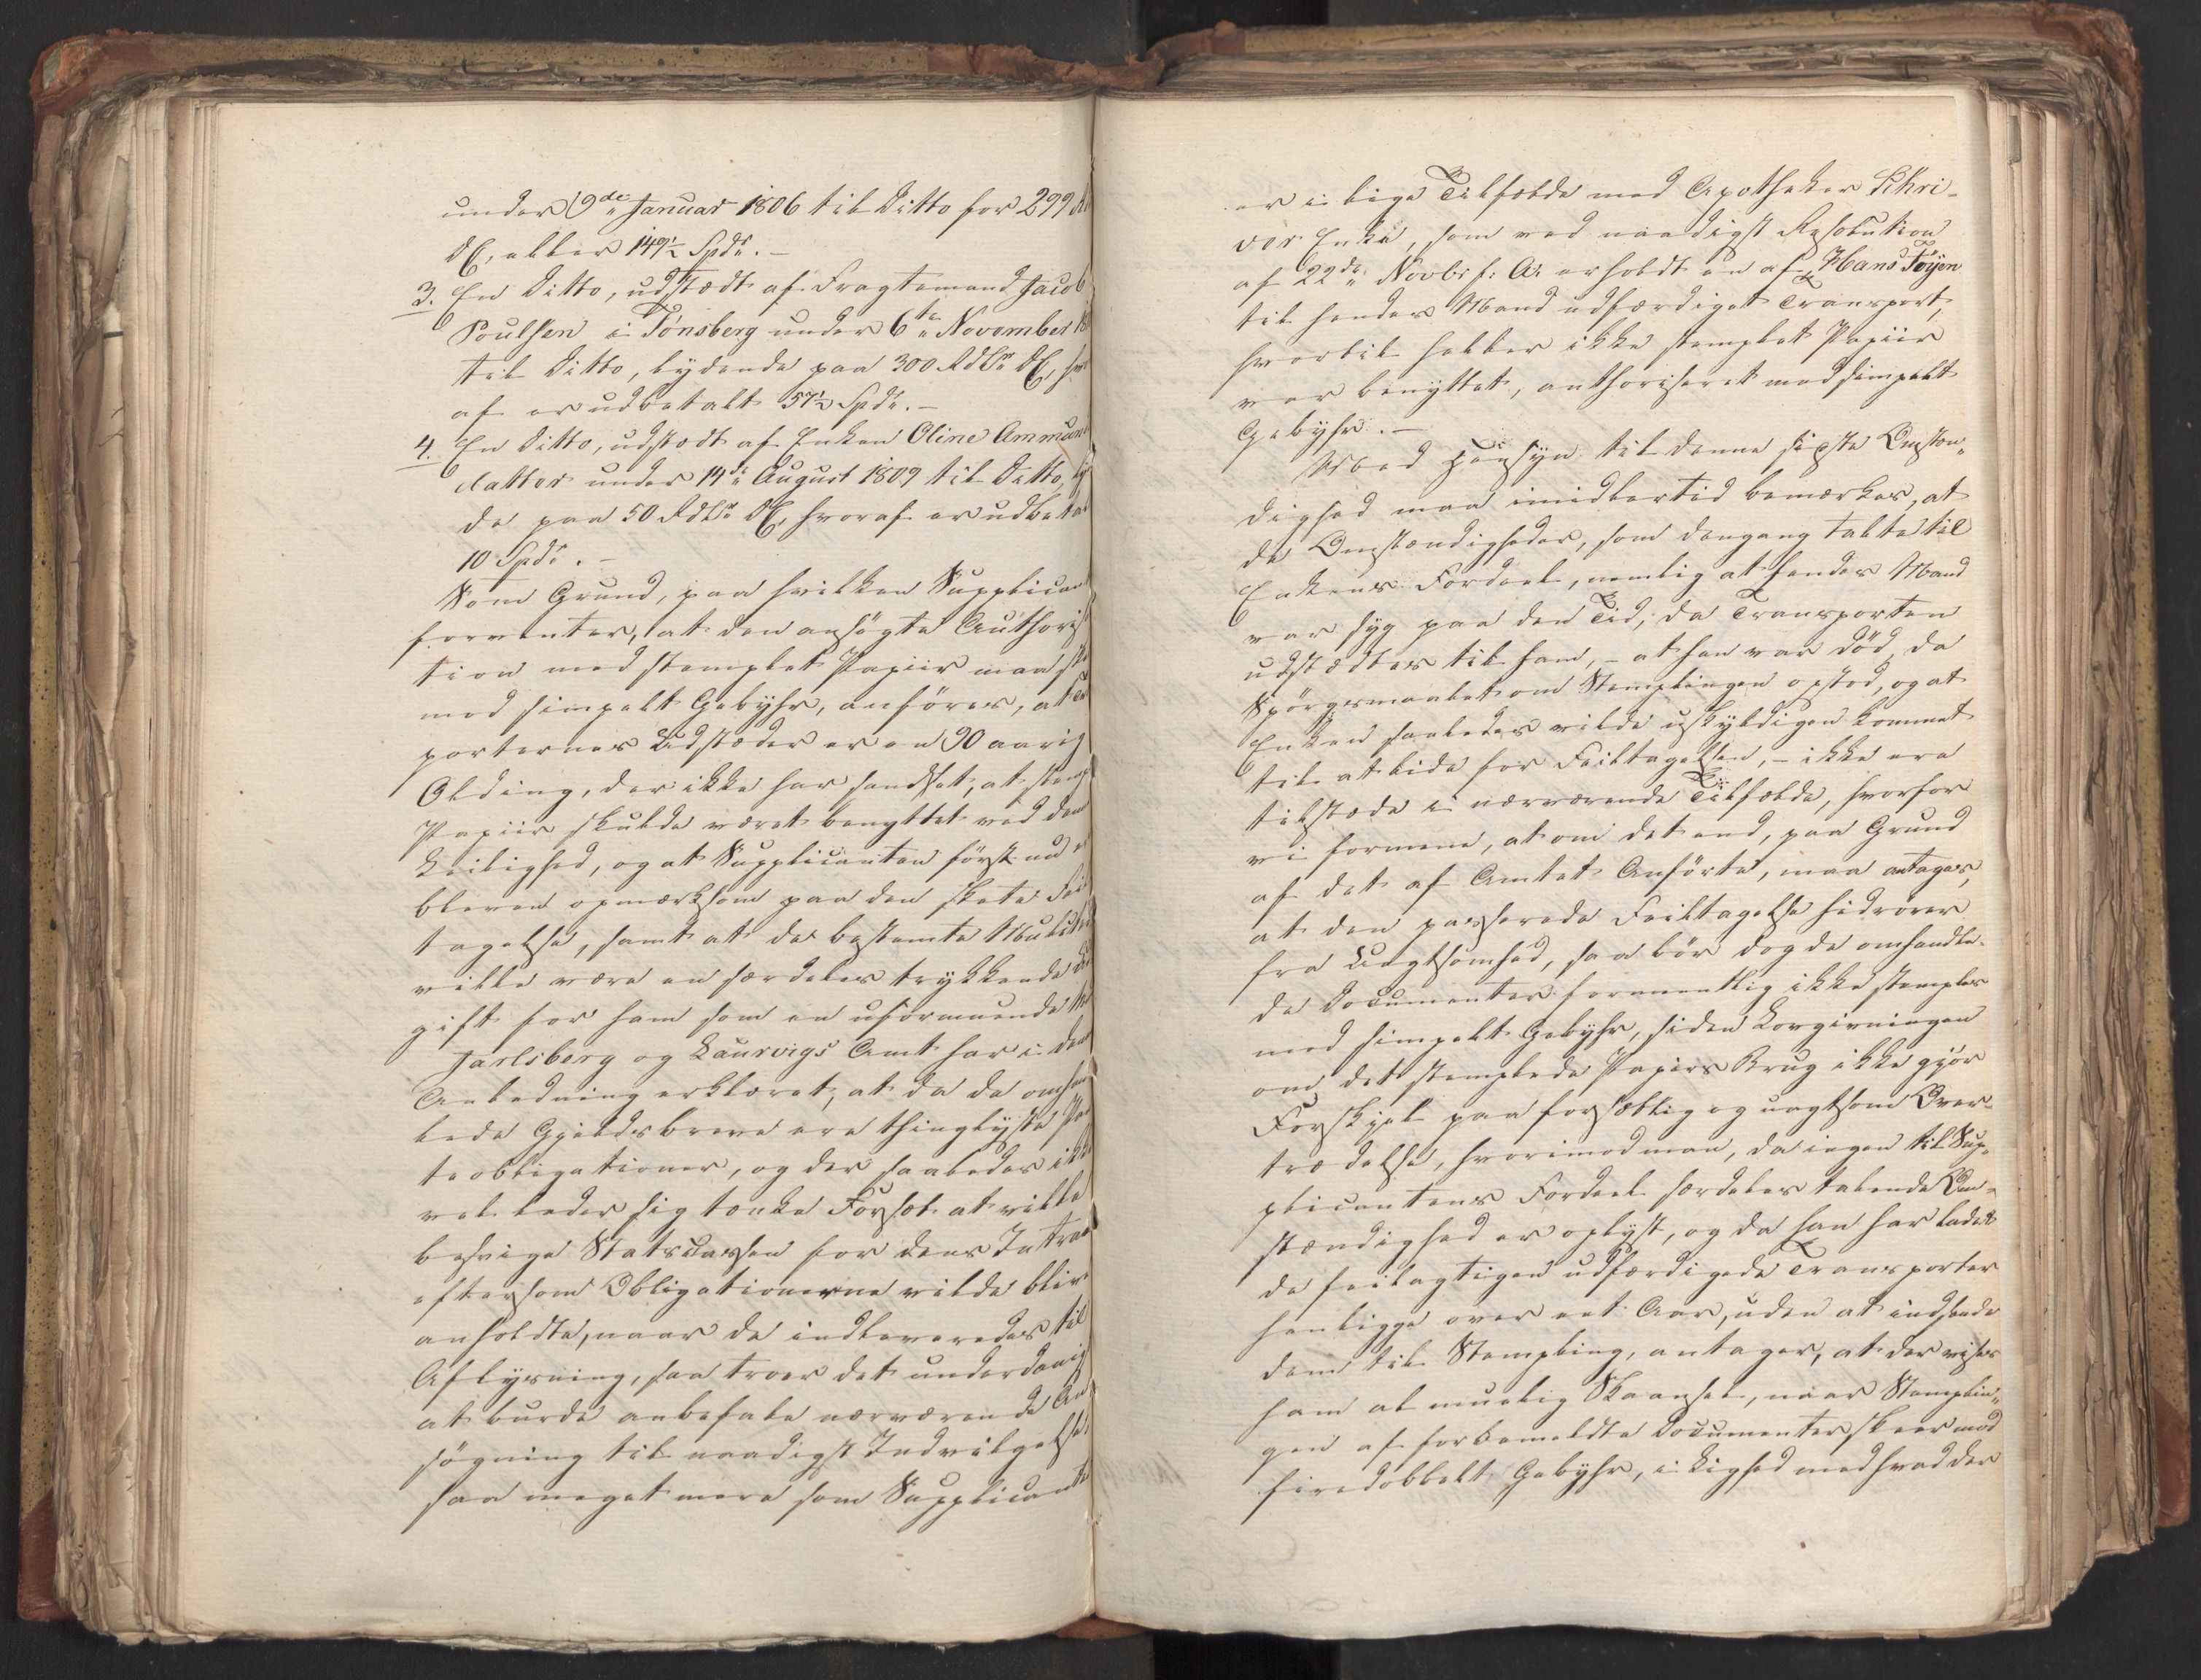 under 9de Januar 1806 til Ditto for 299 Rd
DC, eller 149½ Spdr. –
3. En Ditto, udstædt af Fragtemand Jacob
Poulsen i Tönsberg under 6te November 18
til Ditto, lydende paa 300 Rdlr DC, hvor
af er udbetalt 57½ Spdr. –
4. En Ditto, udstædt af Enken Oline Ammund
datter under 14de August 1809 til Ditto, ly
de paa 50 Rdlr DC, hvoraf er udbetal
10 Spdr. –
Som Grund, paa hvilken Supplican
forventer, at den ansögte Authoris
tion med stemplet Papiir maa ske
mod simpelt Gebyhr, anföres, at Tr
porternes Udstæder er en 90 aarig
Olding, der ikke har sandset, at stemp
Papiir skulde været benyttet ved den
Leilighed, og at Supplicanten först nu er
bleven opmærksom paa den skete Feil
tagelse, samt at de bestemte Mulcter
ville være en særdeles trykkende Ud
gift for ham som en uformuende M
Jarlsberg og Laurvigs Amt har i den
Anledning erklæret, at da de omhan
lede Gjeldsbreve ere thinglyste Pan
teobligationer, og der saaledes ikke
vel lader sig tænke Forsæt at ville
besvige Statscassen for dens Intrad
eftersom Obligationerne vilde blive
anholdte, naar de indleveredes til
Aflysning, saa troer det underdanig
at burde anbefale nærværende An
sögning til naadigst Indvilgelse,
saa meget mere som Supplicante
er i lige Tilfælde med Apotheker Schri-
ver Enke, som ved naadigst Resolution
af 22de Novbr f: A: erholdt en af Hans Föyen
til hendes Mand udfærdiget Transport,
hvortil heller ikke stemplet Papiir
var benyttet, authoriseret mod simpelt
Gebyhr. –
Med Hensyn til denne sidste Omstæn„
dighed maa imidlertid bemærkes, at
de Omstændigheder, som dengang talte til
Enkens Fordeel, nemlig at hendes Mand
var syg paa den Tid, da Transporten
udstædtes til ham, – at han var död, da
Spörgsmaalet om Stemplingen opstod, og at
Enken saaledes vilde uskyldigen kommet
til at lide for Feiltagelsen, – ikke ere
tilstede i nærværende Tilfælde, hvorfor
vi formene, at om det end, paa Grund
af det af Amtet Anförte, maa antages,
at den passerede Feiltagelse hidrörer
fra Uagtsomhed, saa bör dog de omhandle-
de Documenter formentlig ikke stemples
mod simpelt Gebyhr, siden Lovgivningen
om det stemplede Papirs Brug ikke gjör
Forskjel paa forsætlig og uagtsom Over-
trædelse, hvorimod man, da ingen til Sup„
plicantens Fordeel særdeles talende Om-
stændighed er oplyst, og da han har ladet
de feilagtigen udfærdigede Transporter
henligge over eet Aar, uden at indsende
dem til Stempling, antager, at der vises
ham al muelig Skaansel, naar Stemplin„
gen af forbemeldte Documenter skeer mod
firedobbelt Gebyhr, i Lighed med hvad der